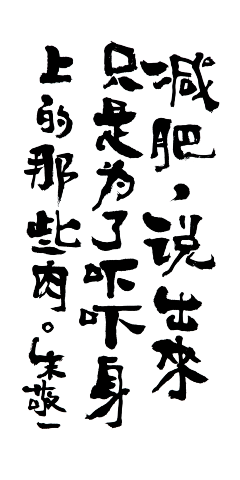 减肥，说出来
只是为了吓吓身
上的那些肉。朱敬一